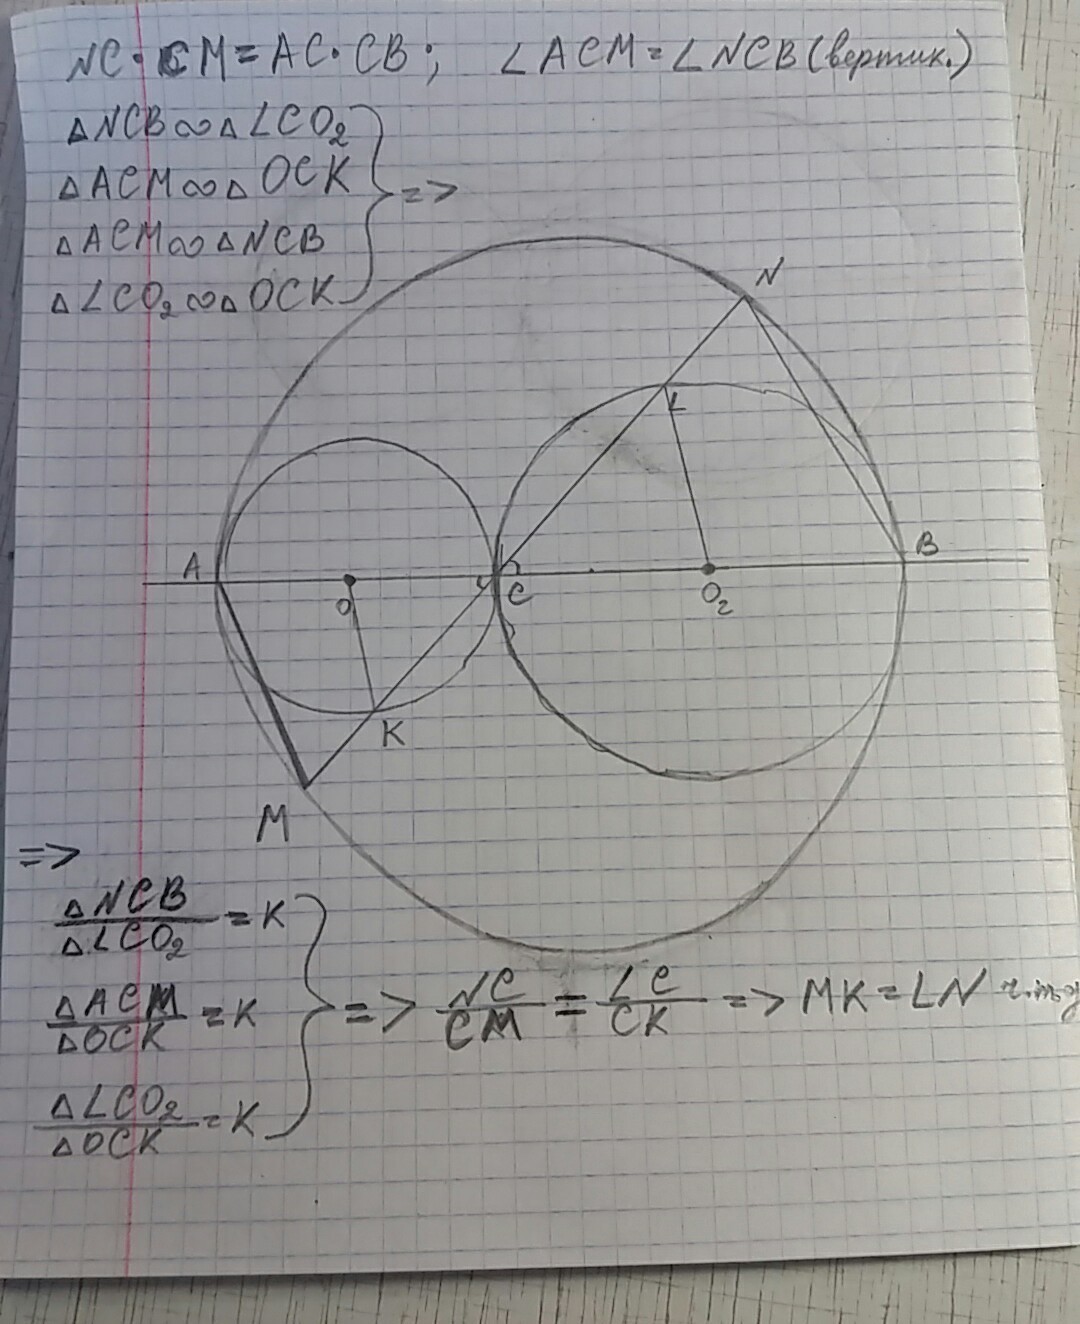 NC · CM = AC · CB ; ∠ACM = ∠NCB (вертик.)
△NCB ∞ △LCO₂
△ACM ∞ △OCK
=>
△ACM ∞ △NCB
△LCO₂ ∞ △OCK
N
L
A
B
O
C
O₂
K
M
=>
△NCB / △LCO₂ = K
△ACM / △OCK = K => NC / CM = LC / CK => MK = LN ч.т.д
△LCO₂ / △OCK = K